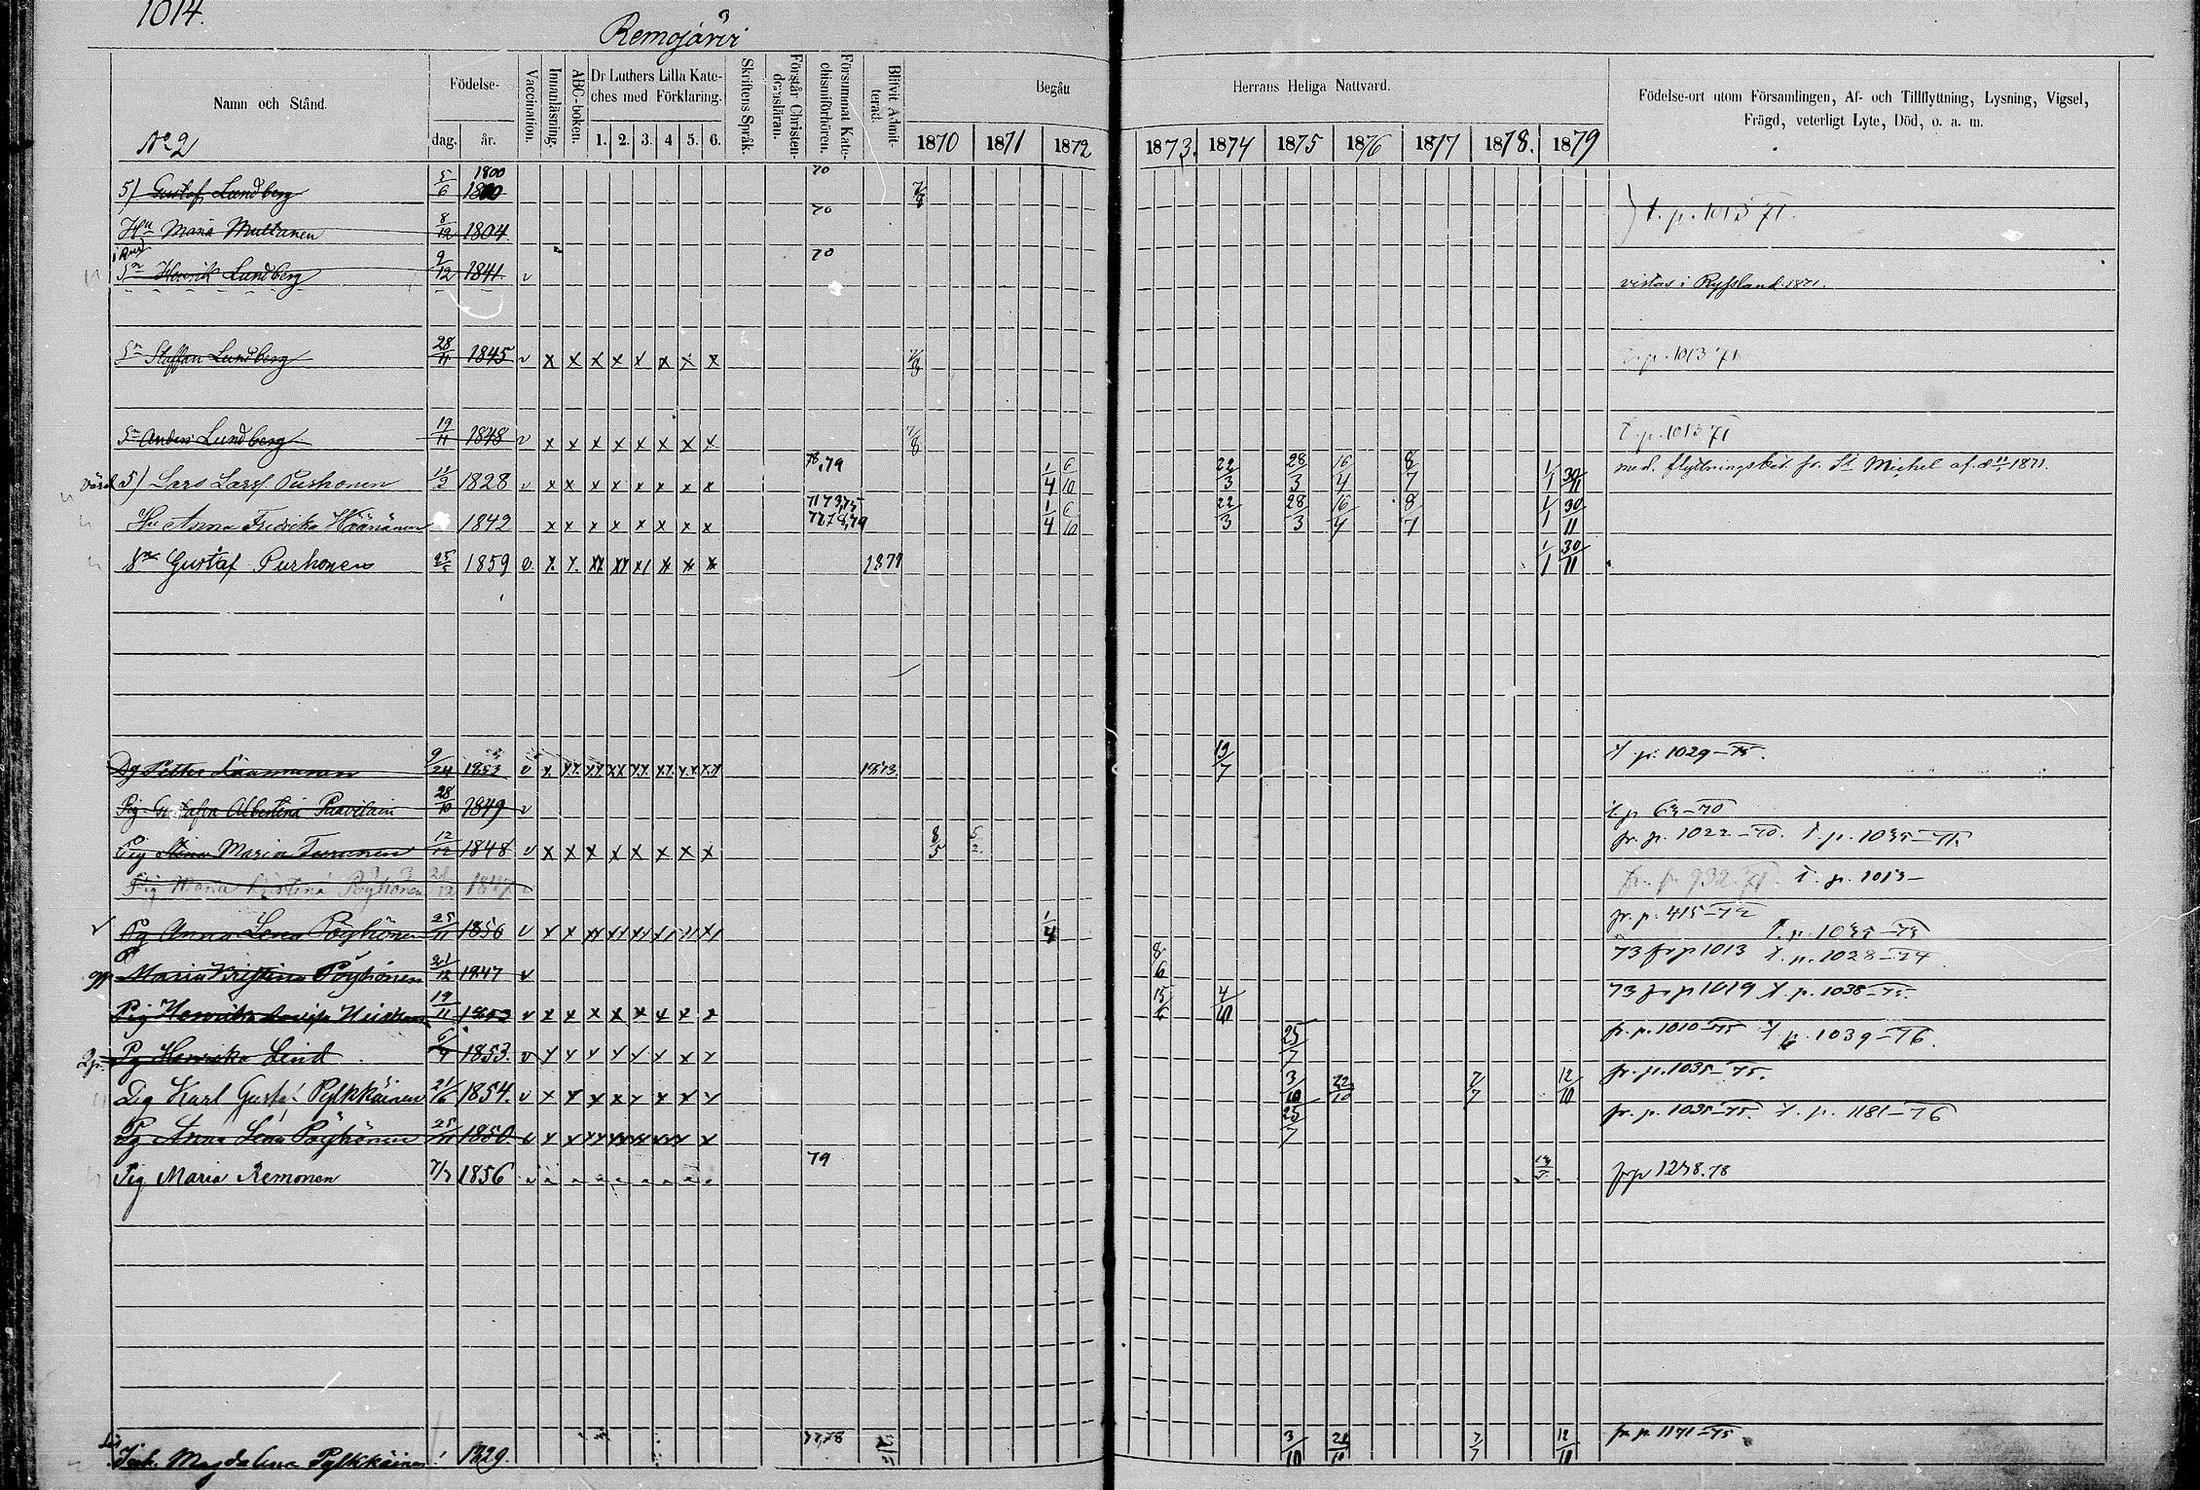 1014.
Remojärvi
Namn och Stånd.
Födelse-
dag.
år.
Vaccination.
Innanläsning.
ABC-boken.
Dr Luthers Lilla Kate-
ches med Förklaring.
1. 2. 3. 4 5. 6.
Skriftens Språk.
Förstår Christen-
domsläran.
Försummat Kate-
chismiförhören.
Blifvit Admit-
terad.
Begått
Herrans Heliga Nattvard.
1870 1871 1872 1873. 1874 1875 1876 1877 1878. 1879
Födelse-ort utom Församlingen, Af- och Tillflyttning, Lysning, Vigsel,
Frägd, veterligt Lyte, Död, o. a. m.
No 2
5) Gustaf Lundberg 5/6 1800 1800 70 t. p. 1013 71.
Hu Maria Multanen 8/12 1804. 70
i Ryssl
Sn Henrik Lundberg 9/12 1841. v 70 vistas i Ryssland 1871.
Sn Staffan Lundberg 28/11 1845 v x x x x x x x x t. p. 1013 71
Sn Anders Lundberg 19/11 1848 v x x x x x x x x 7/8 t. p. 1013 71
värd 5) Lars Larsf Purhonen 1828 v x x x x x x x x 78,79 1/4 6/10 22/3 28/3 16/4 8/7 1/1 30/11 med. flyttningsbet. fr. St Michel af d 1871.
Hu Anna Fredrika Hänänen 1842 x x x x x x x x 71 73,75 77 78,79 1/4 6/10 22/3 28/3 16/4 8/7 1/1 30/11
Sn Gustaf Purhonen 1859 v. x x xx xx x x x x 1/1 30/11
Dg Petter Laamanen 9/24 1853 v x xx xx xx xx xx xx xx 1873 19/7 t p. 1029-75.
Pig. Gustafva Albertina Paavilain 28/10 1849 v t. p 63-70
Pig Stina Maria Turunen 12/12 1848 v x x x x x x x x 8/5 5/2. fr. p. 1022-70. t. p. 1035-71.
Pig Maria Kristina Pöyhönen 21/12 1847 v fr. p. 932. 71. t. p. 1013-
Pg Anna Lena Pöyhönen 25/11 1856 v 1/4 fr. p. 415-72 t. p. 1035-73
P Maria Kristina Pöyhönen 21/12 1847 v 8/6 73 fr p 1013 t. p. 1028-74
Pig Henrika Lovisa 19/11 1853 v x x x x x x x x 15/6 4/10 73 fr p 1019 t. p. 1038-75.
Pg Henrika Lind 6/9 1853. v x x x x x x x x 25/7 fr. p. 1010-75 t p. 1039-76.
Dg Karl Gustaf Pylkkäinen 21/6 1854. v x x x x x x x x 3/10 22/10 7/7 12/10 fr. p. 1035-75.
Pg Anna Lena Pöyhönen 25/11 1850 v 25/7 fr. p. 1035-75. t. p. 1181-76
Pig Maria Remonen 7/7 1856 79 fr p 1238.78
Magdalena Pylkkäinen 1829. 77,78 3/10 7/7 12/10 fr. p. 1171-75